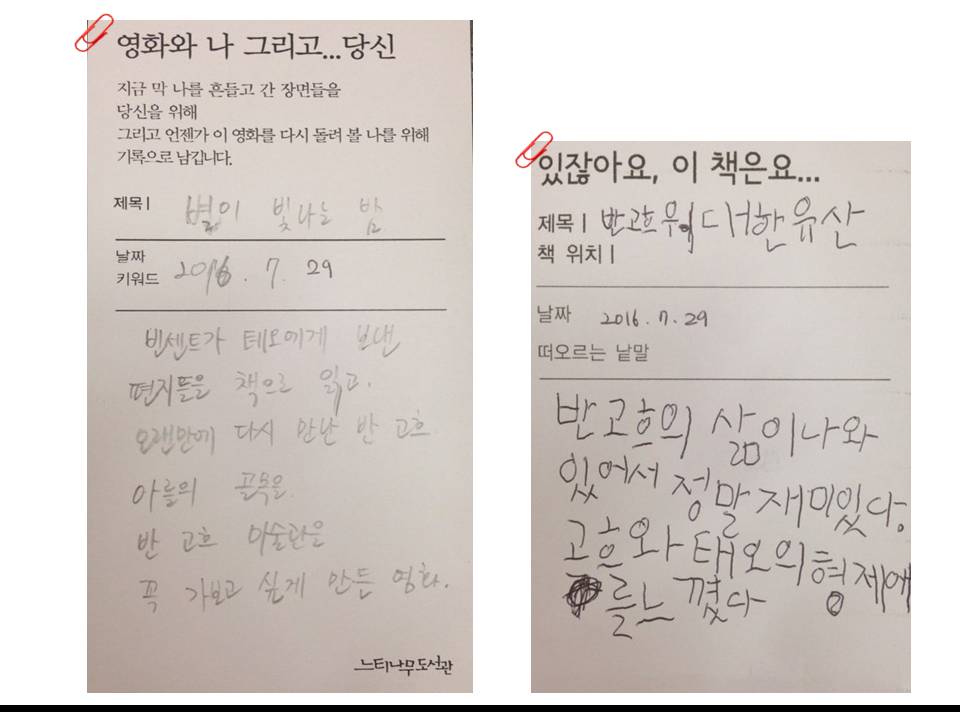 영화와 나 그리고...당신
지금 막 나를 흔들고 간 장면들을
당신을 위해
그리고 언젠가 이 영화를 다시 돌려 볼 나를 위해
기록으로 남깁니다.
제목ㅣ 별이 빛나는 밤
날짜 2016. 7. 29
키워드
빈센트가 테오에게 보낸
편지들을 책으로 읽고.
오랜만에 다시 만난 반 고흐.
아를의
반 고흐 미술관을
꼭 가보고 싶게 만든 영화.
느티나무도서관
있잖아요, 이 책은요...
제목ㅣ 반고흐 위대한 유산
책 위치ㅣ
날짜 2016. 7. 29
떠오르는 낱말
반고흐의 삶이 나와
있어서 정말 재미있다.
고흐와 태오의 형제애
를 느꼈다